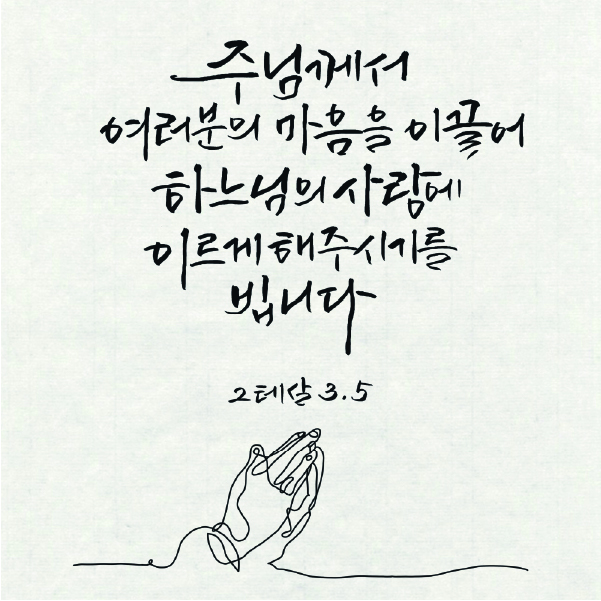 주님께서
여러분의 마음을 이끌어
하느님의 사랑에
이르게 해주시기를
빕니다
2테살 3.5